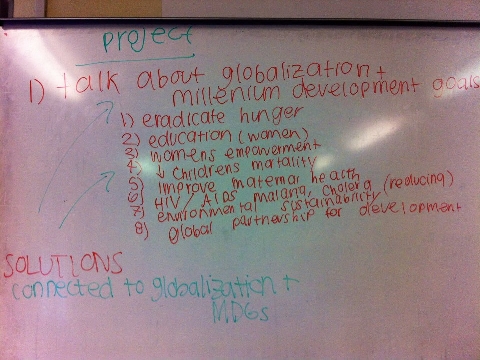 project
1) talk about globalization +
millenium development goals
1) eradicate hunger
2) education (women)
3) womens empowerment
4) ↓ childrens matality
5) improve maternal health
6) HIV/AIDS malaria, cholera (reducing)
7) environmental sustainability
8) global partnership for development
SOLUTIONS
connected to globalization +
MDGs